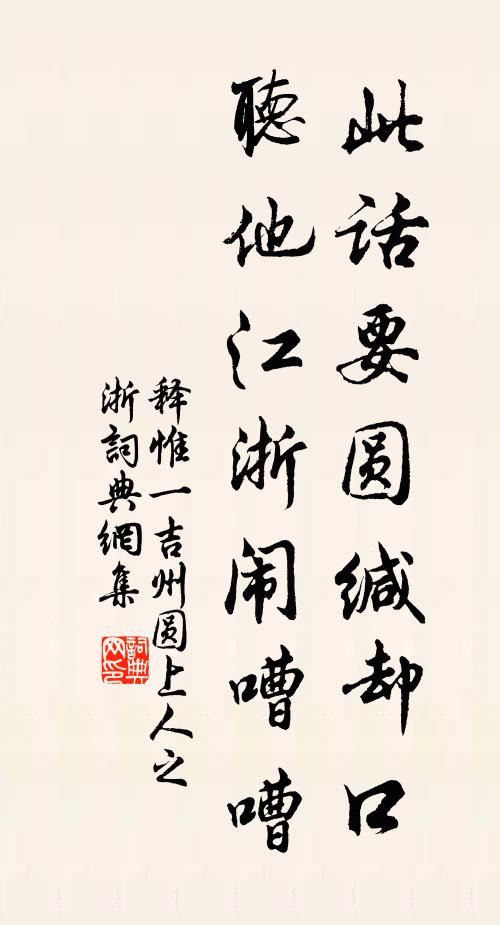 此话要圆缄却口
聽他江浙闹嘈嘈
释惟一吉州圆上人之
浙詞典網集
詞典网印